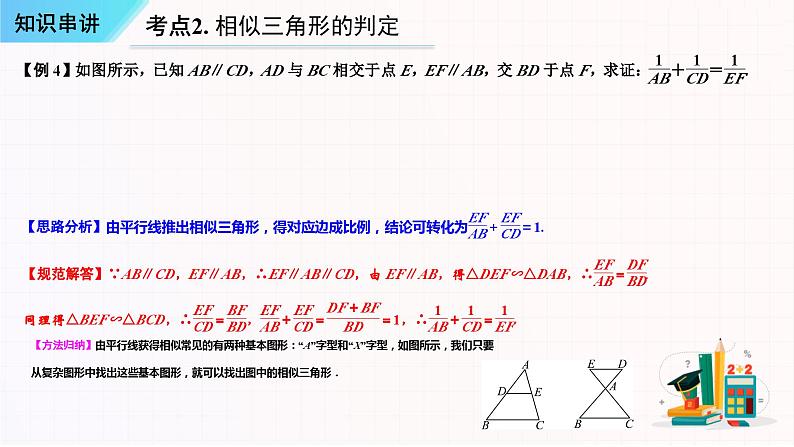 知识串讲
考点2. 相似三角形的判定
【例 4】如图所示，已知 AB∥CD，AD 与 BC 相交于点 E，EF∥AB，交 BD 于点 F，求证：1/AB＋1/CD＝1/EF
【思路分析】由平行线推出相似三角形，得对应边成比例，结论可转化为EF/AB+EF/CD=1.
【规范解答】∵AB∥CD，EF∥AB，∴EF∥AB∥CD，由 EF∥AB，得△DEF∽△DAB，∴EF/AB=DF/BD
同理得△BEF∽△BCD，∴EF/CD=BF/BD，EF/AB+EF/CD=DF+BF/BD=1，∴1/AB+1/CD=1/EF
【方法归纳】由平行线获得相似常见的有两种基本图形：“A”字型和“X”字型，如图所示，我们只要
从复杂图形中找出这些基本图形，就可以找出图中的相似三角形．
A
D E
B C
E D
A
B C
2÷2